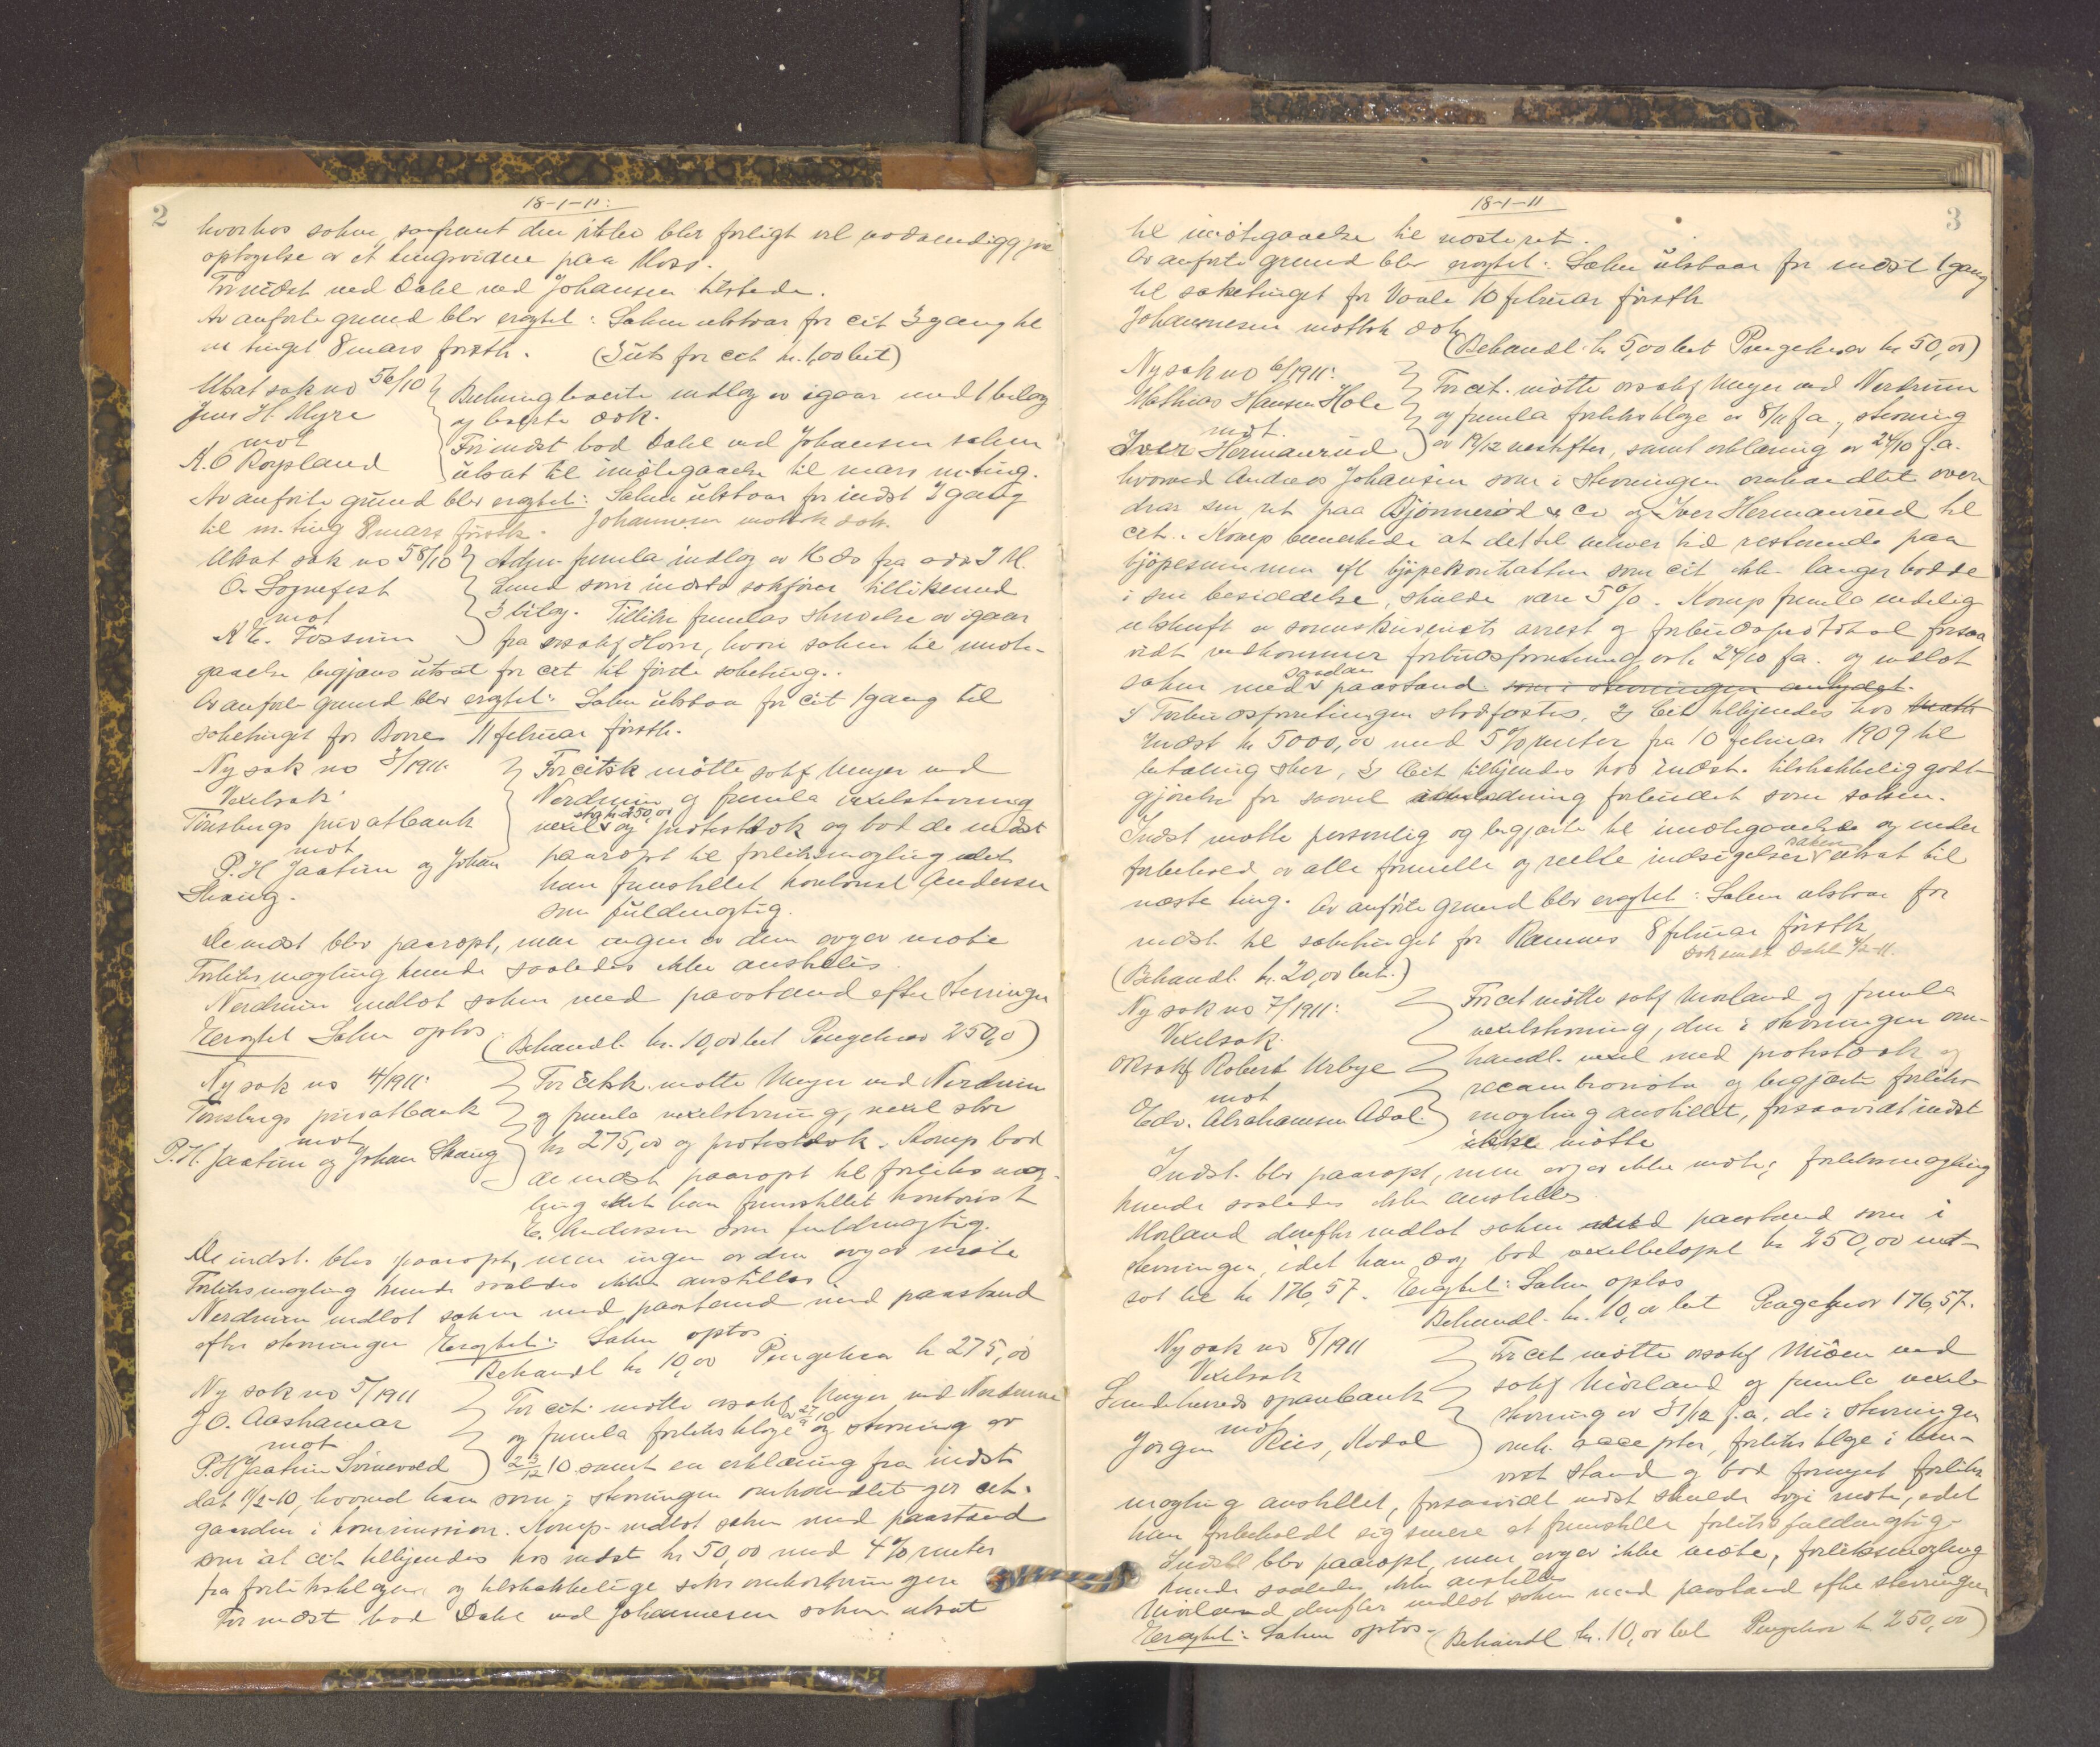 2
18-1-11:
hvorhos saken, saafremt den ikke blir forligt vil nødvendiggjøre
optagelse av et tingsvidne paa Moss.
For indst mød Dahl ved Johansen tilstede.
Av anførte grund blev eragtet: Saken utstaar for cit 3 gang til
m tinget 8 mars førstk. (3 uts for cit kr. 1,00 bet)
Utsat sak no 56/10
Jens H. Myre
mot
K. O Røysland
indlæg av igaar med 1 bilag
og dok.
For indst bød Dahl ved Johansen saken
utsat til imøtegaaelse til mars m-ting.
Av anførte grund blev eragtet: Saken utstaar for indst 3 gang
til m-ting 8 mars førstk. Johannesen mottok dok.
Utsat sak no 58/10
O. Sognefest
mot
K E. Fossum
Adm. fremla indlæg av fra adv J M.
Lund som indstes sakfører tillikemed
3 bilag. Tillike fremlas skrivelse av igaar
fra orsakf Horn, hvori saken til imøte-
gaaelse begjæres utsat for cit til første saketing..
Av anførte grund blev eragtet: Saken utstaa for cit 1 gang til
saketinget for Borre 11 februar førstk.
Ny sak no 3/1911:
Vexelsak
Tønsbergs privatbank
mot
P. H Jaatun og Johan
Skaug.
For citsk møtte sakf Unger ved
Nerdrum og fremla vexelstevning
vexel stor kr 250,00 og protestdok og bød de indst
paaropt til forliksmægling idet
han fremstillet kontorist Andersen
som fuldmægtig.
De indst blev paaropt, men ingen av dem avgav møte
Forliksmægling kunde saaledes ikke anstilles.
Nerdrum indlot saken med paastand efter stevningen
Eragtet Saken optas. (Behandl. kr. 10,00 bet Pengekrav 250,0)
Ny sak no 4/1911:
Tønsbergs privatbank
mot
P. H. Jaatun og Johan Skaug
For citsk. møtte Unger ved Nerdrum
og fremla vexelstevning, vexel stor
kr 275,00 og protestdok. Komp bød
de indst paaropt til forliksmæg-
ling idet han fremstillet kontorist
E. Andersen som fuldmægtig.
De indst. blev paaropt, men ingen av dem avgav møte
Forliksmægling kunde saaledes ikke anstilles.
Nerdrum indlot saken med paastand med paastand
efter stevningen Eragtet: Saken optas.
Behandl kr 10,00 Pengekrav kr 275,00
Ny sak no 5/1911
J O. Aashamar
mot
P. H Jaatun Svinevold
For cit. møtte orsakf Unger ved Nerdrum
og fremla forliksklage av 27/10 og stevning av
23/12 10 samt en erklæring fra indst
dat 11/2-10, hvorved han som i stevningen omhandlet gir cit.
gaarden i kommission. Komp. indlot saken med paastand
om at cit tilkjendes hos indst kr 50,00 med 4% renter
fra forliksklagen og tilstrækkelige saksomkostninger
For indst bød Dahl ved Johannesen saken utsat
18-1-11
3
til imøtegaaelse til næste ret.
Av anførte grund blev eragtet: Saken utstaar for indst 1 gang
til saketinget for Vaale 10 februar førstk
Johannesen mottok dok
(Behandl. kr 5,00 bet Pengekrav kr 50,00)
Ny sak no 6/1911:
Mathias Hansen Hole
mot.
Iver Hermanrud
For cit. møtte orsakf Unger ved Nerdrum
og fremla forliksklage av 8/11 f.a., stevning
av 19/12 næstefter, samt erklæring av 24/10 f.a.
hvorved Andreas Johansen som i stevningen omhandlet over
drar sin ret paa Bjønnerød & Co og Iver Hermanrud til
cit. Komp bemerkede at det til enhver tid resterende paa
kjøpesummen efl kjøpekontrakten som cit ikke længer hadde
i sin besiddelse, skulde være 5%. Komp fremla endelig
utskrift av sorenskriverens arrest og forbudsprotokol forsaa
vidt vedkommer forbudsforretning avh 24/10 f.a. og indlot
saken med saadan paastand som i stevningen antydet.
1 Forbudsforretningen stadfæstes, 2) Cit tilkjendes hos
indst kr 5000,00 med 5% renter fra 10 februar 1909 til
betaling sker, 3) Cit tilkjendes hos indst. tilstrækkelig godt-
gjørelse for saavel forbudet som saken.
Indst møtte personlig og begjærte til imøtegaaelse og under
forbehold av alle formelle og reelle indsigelser saken utsat til
næste ting. Av anførte grund blev eragtet: Saken utstaar for
indst. til saketinget for Ramnes 8 februar førstk
Dok sendt Dahl 4/2-11.
(Behandl. kr. 20,00 bet.)
Ny sak no 7/1911:
Vexelsak.
orsakf Robert Urbye
mot
Edv. Abrahamsen Adal.
For cit møtte sakf Mørland og fremla
vexelstevning, den i stevningen om-
handl. vexel med protestdok og
recambionota og begjærte forliks-
mægling anstillet, forsaavidt indst
ikke møtte
Indst. blev paaropt, men avgav ikke møte, forliksmægling
kunde saaledes ikke anstilles
Mørland derefter indlot saken med paastand som i
stevningen, idet han dog bød vexelbeløpet kr 250,00 net-
sat til kr 176,57. Eragtet: Saken optas
Behandl. kr. 10,00 bet Pengekrav 176,57.
Ny sak no 8/1911
Vexelsak
Sandeherreds sparebank
mot
Jørgen Riis, Kodal
For cit møtte orsakf Miøen ved
sakf Mørland og fremla vexel-
stevning av 31/12 f.a., de i stevningen
omh. accepter, forliksklage i hen-
vist stand og bød fornyet forliks
mægling anstillet, forsaavidt indst skulde avgi møte, idet
han forbeholdt sig senere at fremstille forliksfuldmægtig.
Indst blev paaropt, men avgav ikke møte, forliksmægling
kunde saaledes ikke anstilles
Mørland derefter indlot saken med paastand efter stevningen
Eragtet: Saken optas. (Behandl kr. 10,00 bet Pengekrav kr 250,00)